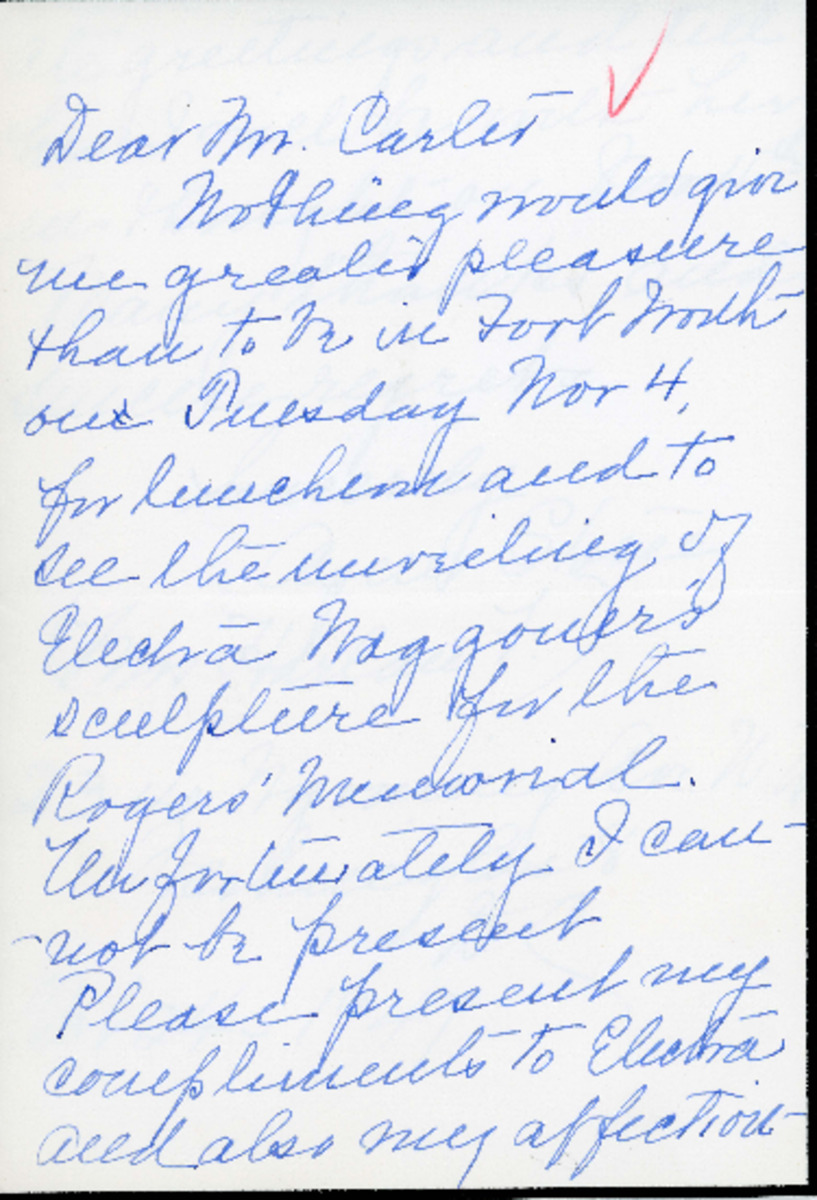 Dear Mr. Carter
Nothing would give
me greater pleasure
than to be in Fort Worth
on Tuesday Nov 4,
for luncheon and to
see the unveiling of
Electra Waggoner's
sculpture for the
Rogers' Memorial.
Unfortunately I can-
-not be present
Please present my
compliments to Electra
and also my affection-